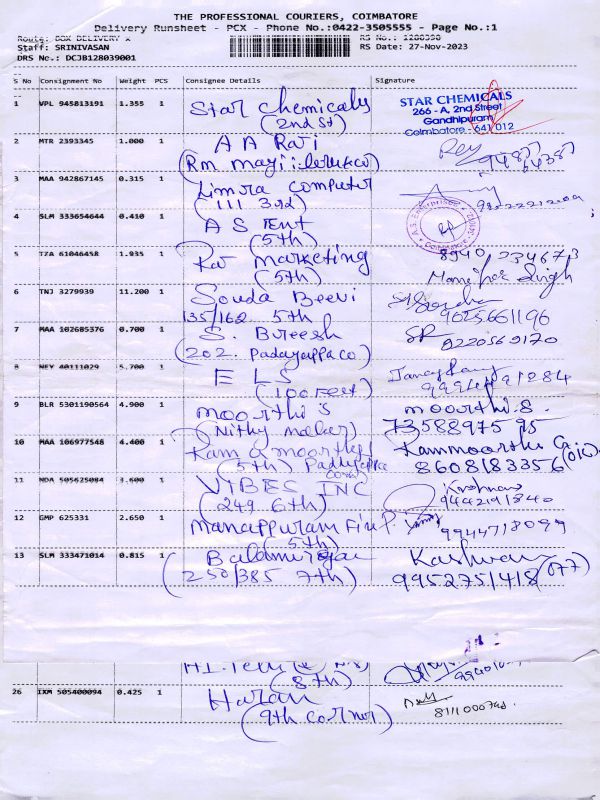 THE PROFESSIONAL COURIERS, COIMBATORE
Delivery Runsheet - PCX - Phone No.:0422-3505555 - Page No.:1
Route: BOX DELIVERY x RS No.: 1288390
Staff: SRINIVASAN RS Date: 27-Nov-2023
DRS No.: DCJB128039001
S No Consignment No Weight PCS Consignee Details Signature
1 VPL 945813191 1.355 1 Star Chemicals
(2nd St)
STAR CHEMICALS
266 - A, 2nd Street
Gandhipuram
Coimbatore - 641 012
2 MTR 2393345 1.000 1 A A Ravi
3 MAA 942867145 0.315 1 Limra Computer
(111 3rd)
4 SLM 333654644 0.410 1 A S Ent
(5th)
A.S. Enterprises
Coimbatore
5 TZA 61046458 1.935 1 Marketing
(5th)
8940 234673
Singh
6 TNJ 3279939 11.200 1 Souda Beevi
135/162 5th
9625661196
7 MAA 102685376 0.700 1 S. Breesh
(202. Padayappa co)
8220569170
8 NEY 40111029 5.700 1 E L S
(100 Feet)
9 BLR 5301190564 4.900 1 Moorthi S
moorthi.S.
7358897595
10 MAA 106977548 4.400 1 Ram moorthy
(5th) Padayappa
Rammoorthi G.
8608183356
11 NDA 505625084 3.600 1 VIBEC INC
(249 6th)
9442191840
12 GMP 625331 2.650 1 Manappuram Fin
(5th)
9944713099
13 SLM 333471014 0.815 1 Balamurugan
(250/385 7th)
9952751418 (077)
(8th)
26 IXM 505400094 0.425 1 Haran
(9th Corner)